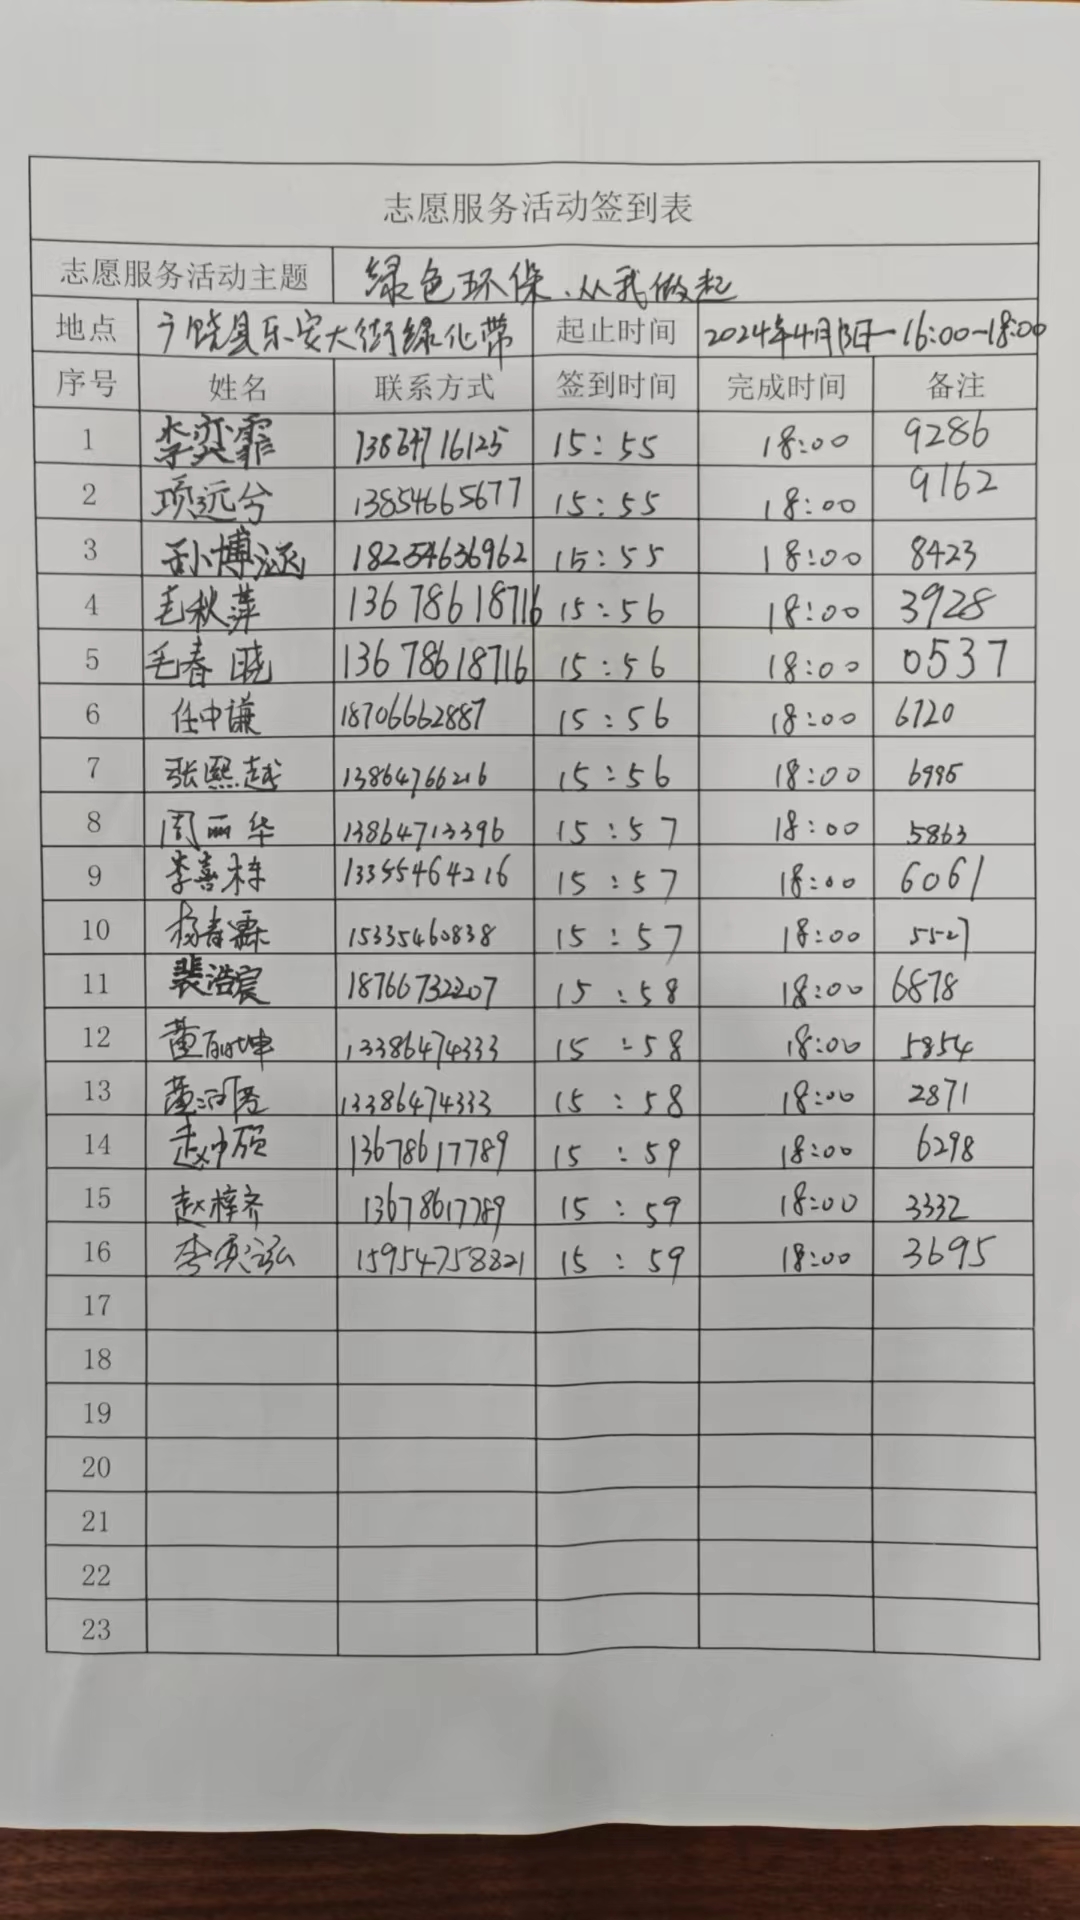 志愿服务活动签到表
志愿服务活动主题 绿色环保、从我做起
地点 广饶县乐安大街绿化带 起止时间 2024年4月13日-16:00-18:00
序号 姓名 联系方式 签到时间 完成时间 备注
1 李奕霏 13864716125 15:55 18:00 9286
2 项远兮 13854665677 15:55 18:00 9162
3 孙博涵 18254636962 15:55 18:00 8423
4 毛秋萍 13678618716 15:56 18:00 3928
5 毛春晓 13678618716 15:56 18:00 0537
6 任中谦 18706662887 15:56 18:00 6720
7 张熙越 13864766216 15:56 18:00 6995
8 周丽华 13864713396 15:57 18:00 5863
9 李喜栋 13355464216 15:57 18:00 6061
10 杨春霖 15335460838 15:57 18:00 5527
11 裴浩宸 18766732207 15:58 18:00 6878
12 13386474333 15:58 18:00 5854
13 13386474333 15:58 18:00 2871
14 赵中硕 13678617789 15:59 18:00 6298
15 赵梓齐 13678617789 15:59 18:00 3332
16 15954758821 15:59 18:00 3695
17
18
19
20
21
22
23